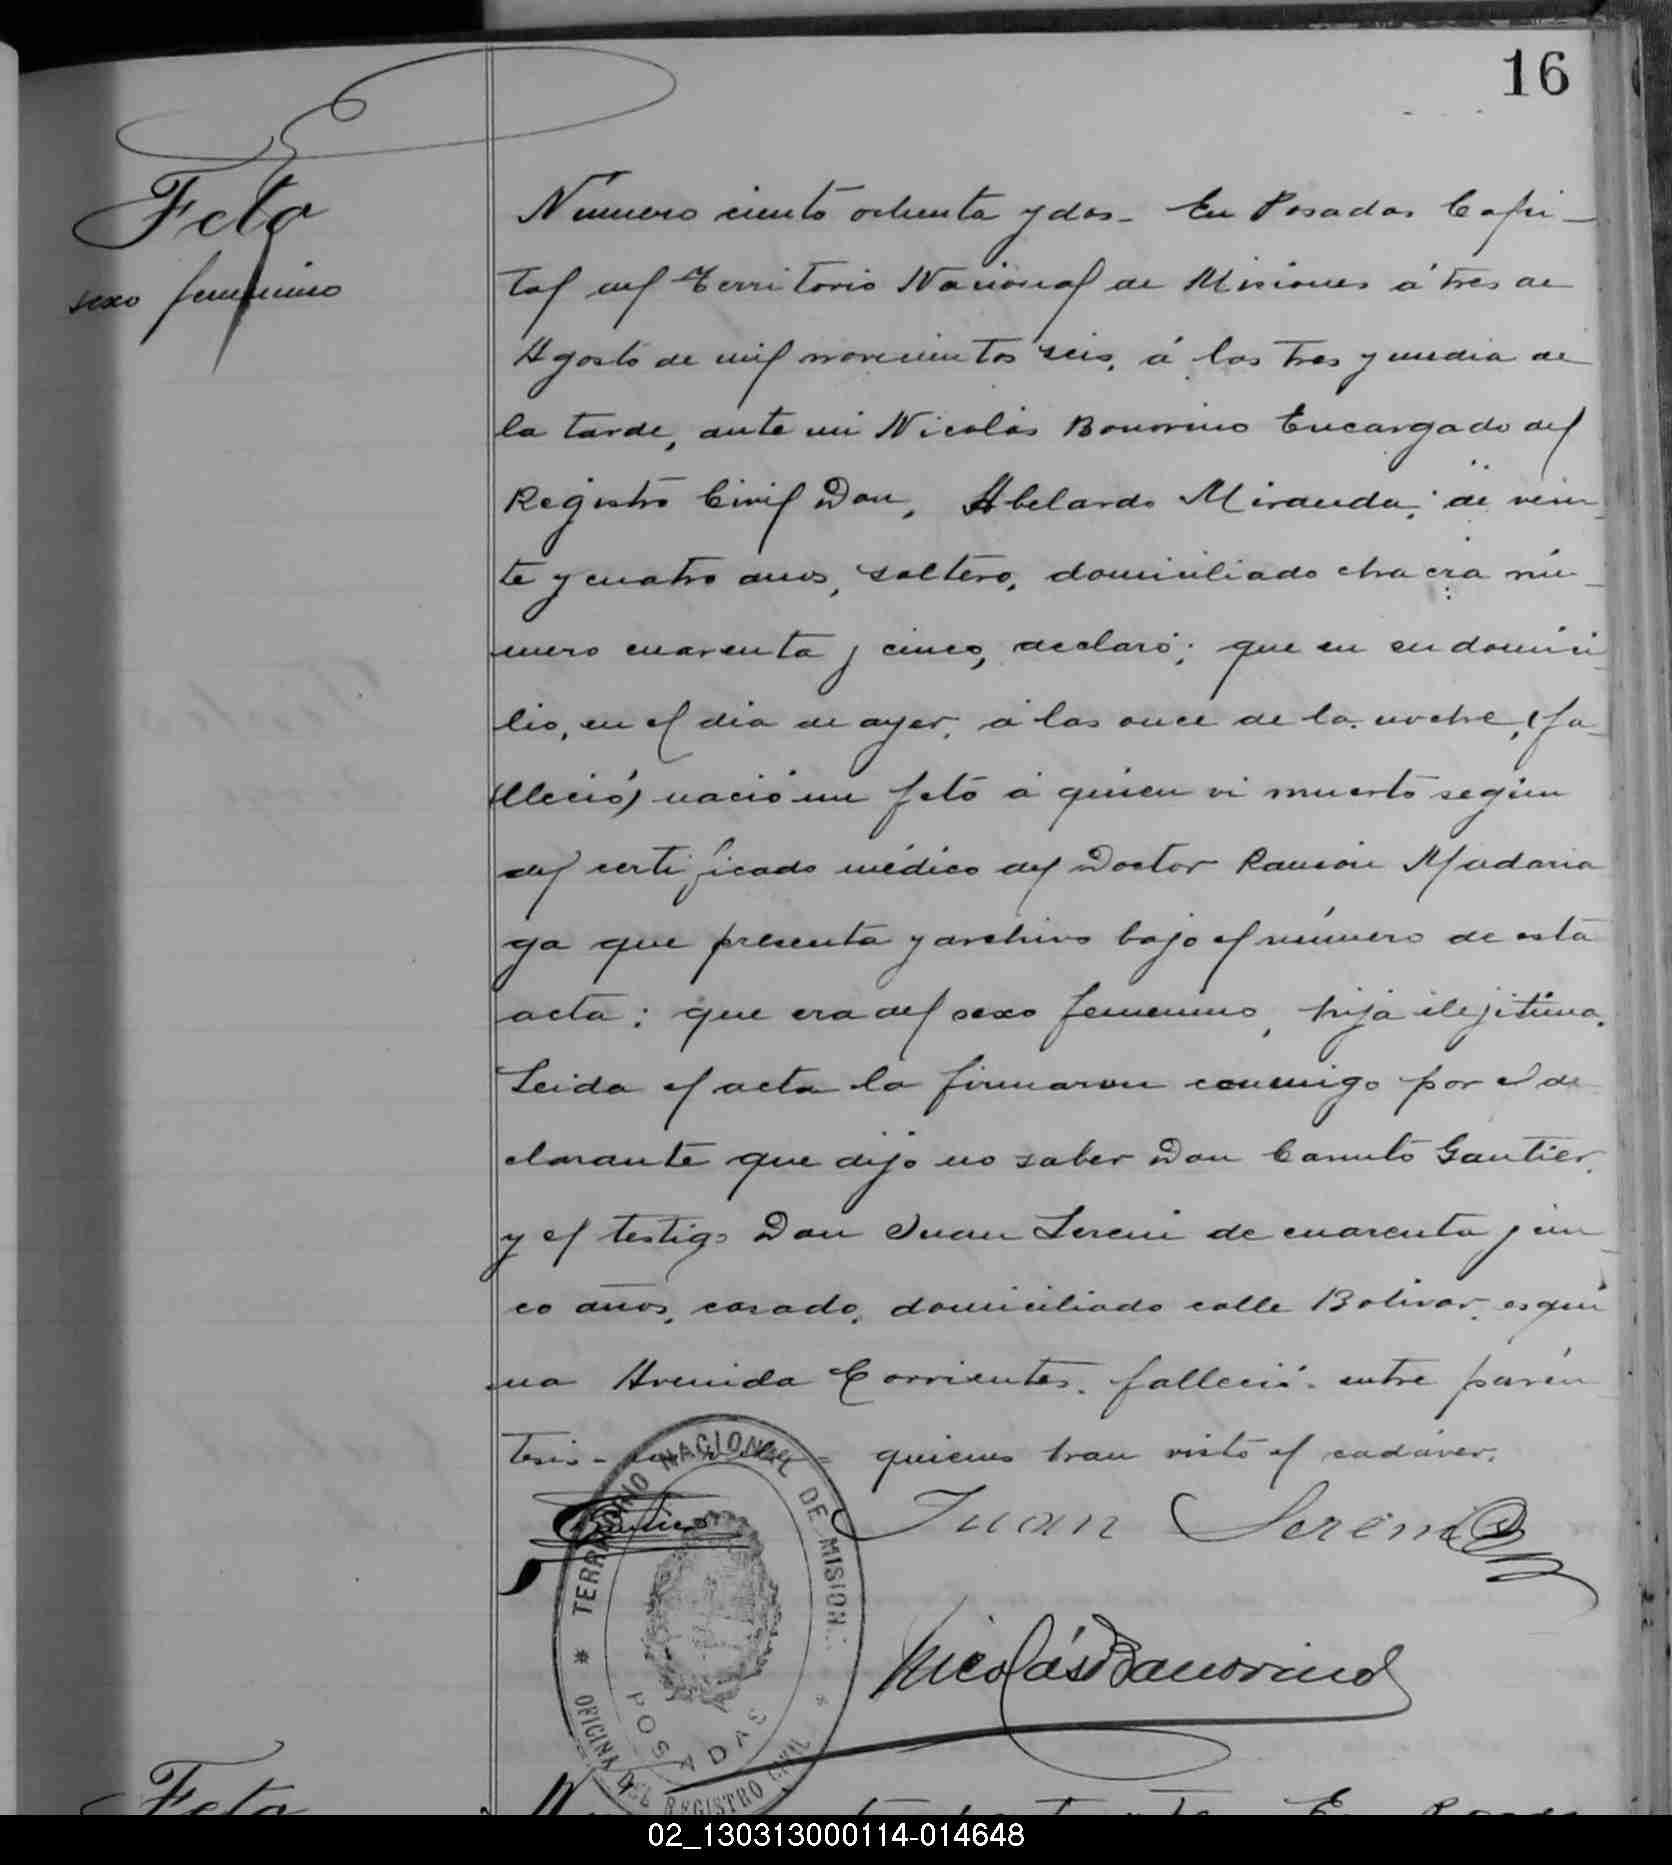 16
Feto
sexo femenino
Número ciento ochenta y dos - En Posadas Capi-
tal del Territorio Nacional de Misiones á tres de
Agosto de mil novecientos seis, á las tres y media de
la tarde, ante mi Nicolás Bonorino Encargado del
Registro Civil Don, Abelardo Miranda, de vein-
te y cuatro anos, soltero, domiciliado chacra nú-
mero cuarenta y cinco, declaró; que en su domici-
lio, en el dia de ayer, á las once de la noche, (fa-
lleció) nació un feto á quien vi muerto según
del certificado médico del Doctor Ramón Madaria
ga que presenta y archivo bajo el número de esta
acta: que era del sexo femenino, hija ilejitima.
Leida el acta la firmaron conmigo por el de
clarante que dijo no saber Don Canuto Gautier,
y el testigo Don Juan Sereni de cuarenta y cin-
co años, casado, domiciliado calle Bolivar, esqui
na Avenida Corrientes. falleció - entre parén
tesis - quienes han visto el cadáver.
Gautier
Juan Sereni
Nicolás Bonorino
TERRITORIO NACIONAL DE MISION
OFICINA DEL REGISTRO CIVIL
POSADAS
Feto
02_130313000114-014648